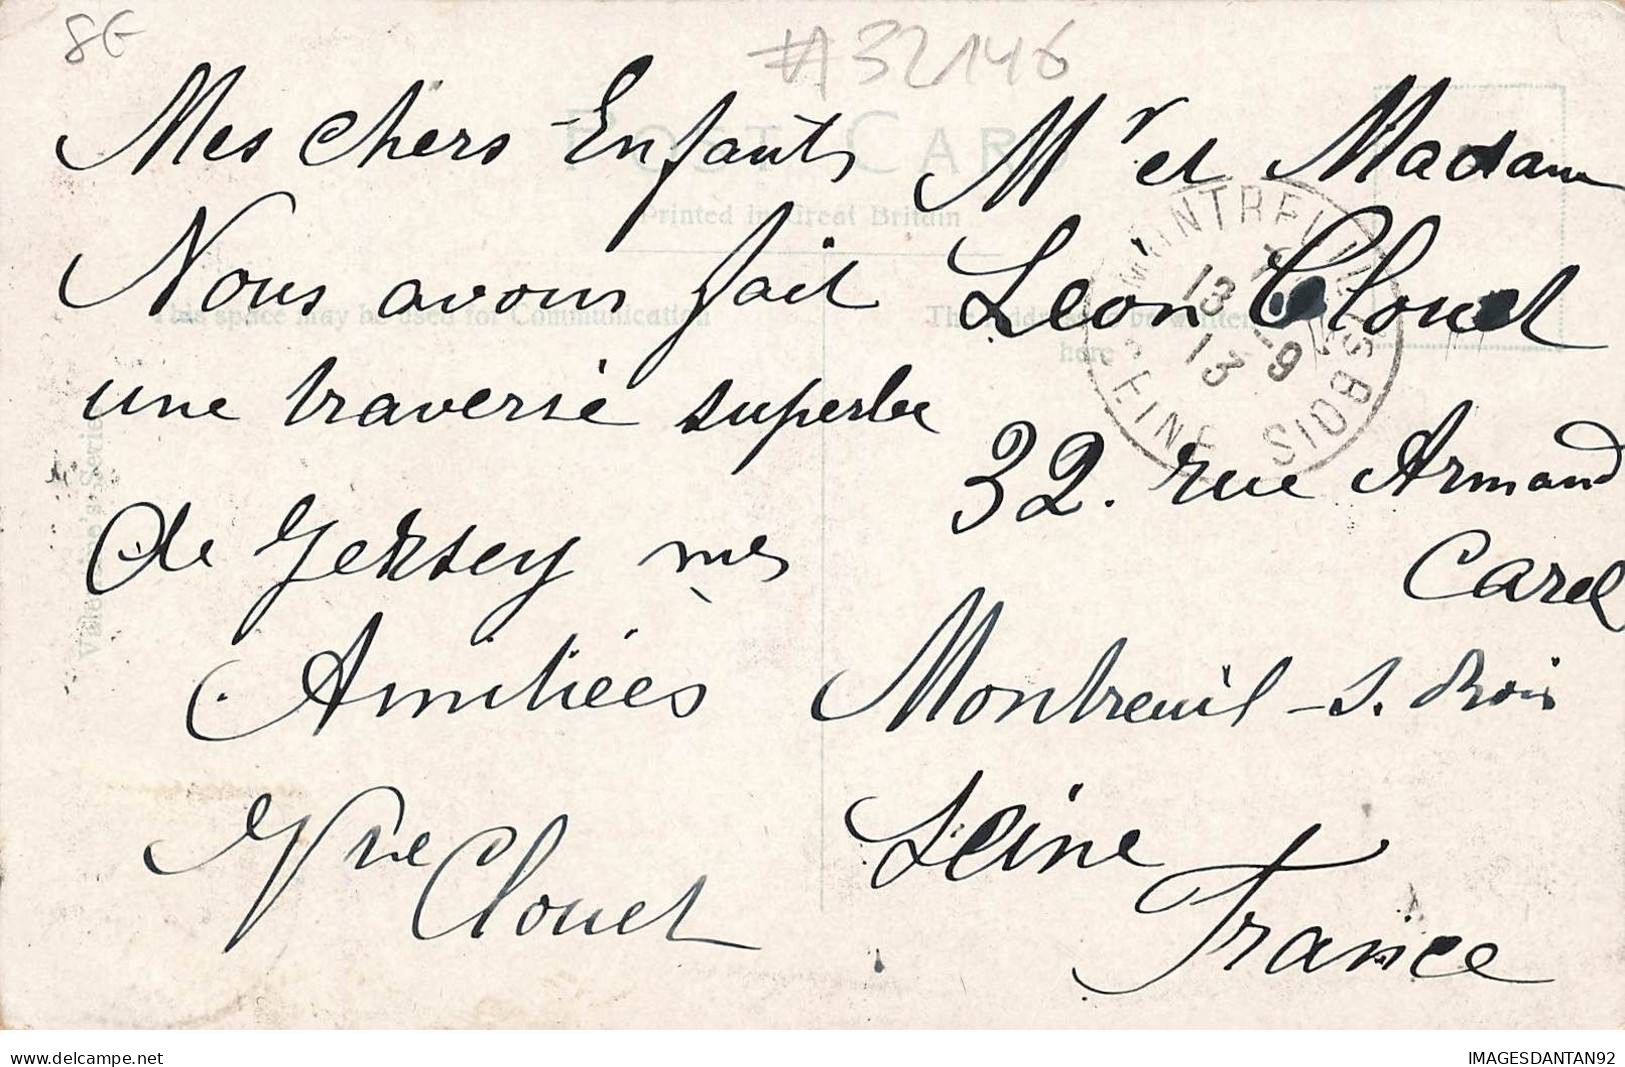 8€
#32146
POST CARD
Printed in Great Britain
This space may be used for Communication
The Address to be written here
Mes chers Enfants
Nous avons fait
une traversé superbe
de Jersey mes
Amitiées
Vve Clouet
Mr et Madame
Léon Clouet
32. rue Armand
Carel
Montreuil - s. Bois
Seine
France
MONTREUIL S BOIS
SEINE
13 - 9
13
delcampe.net
IMAGESDANTAN92